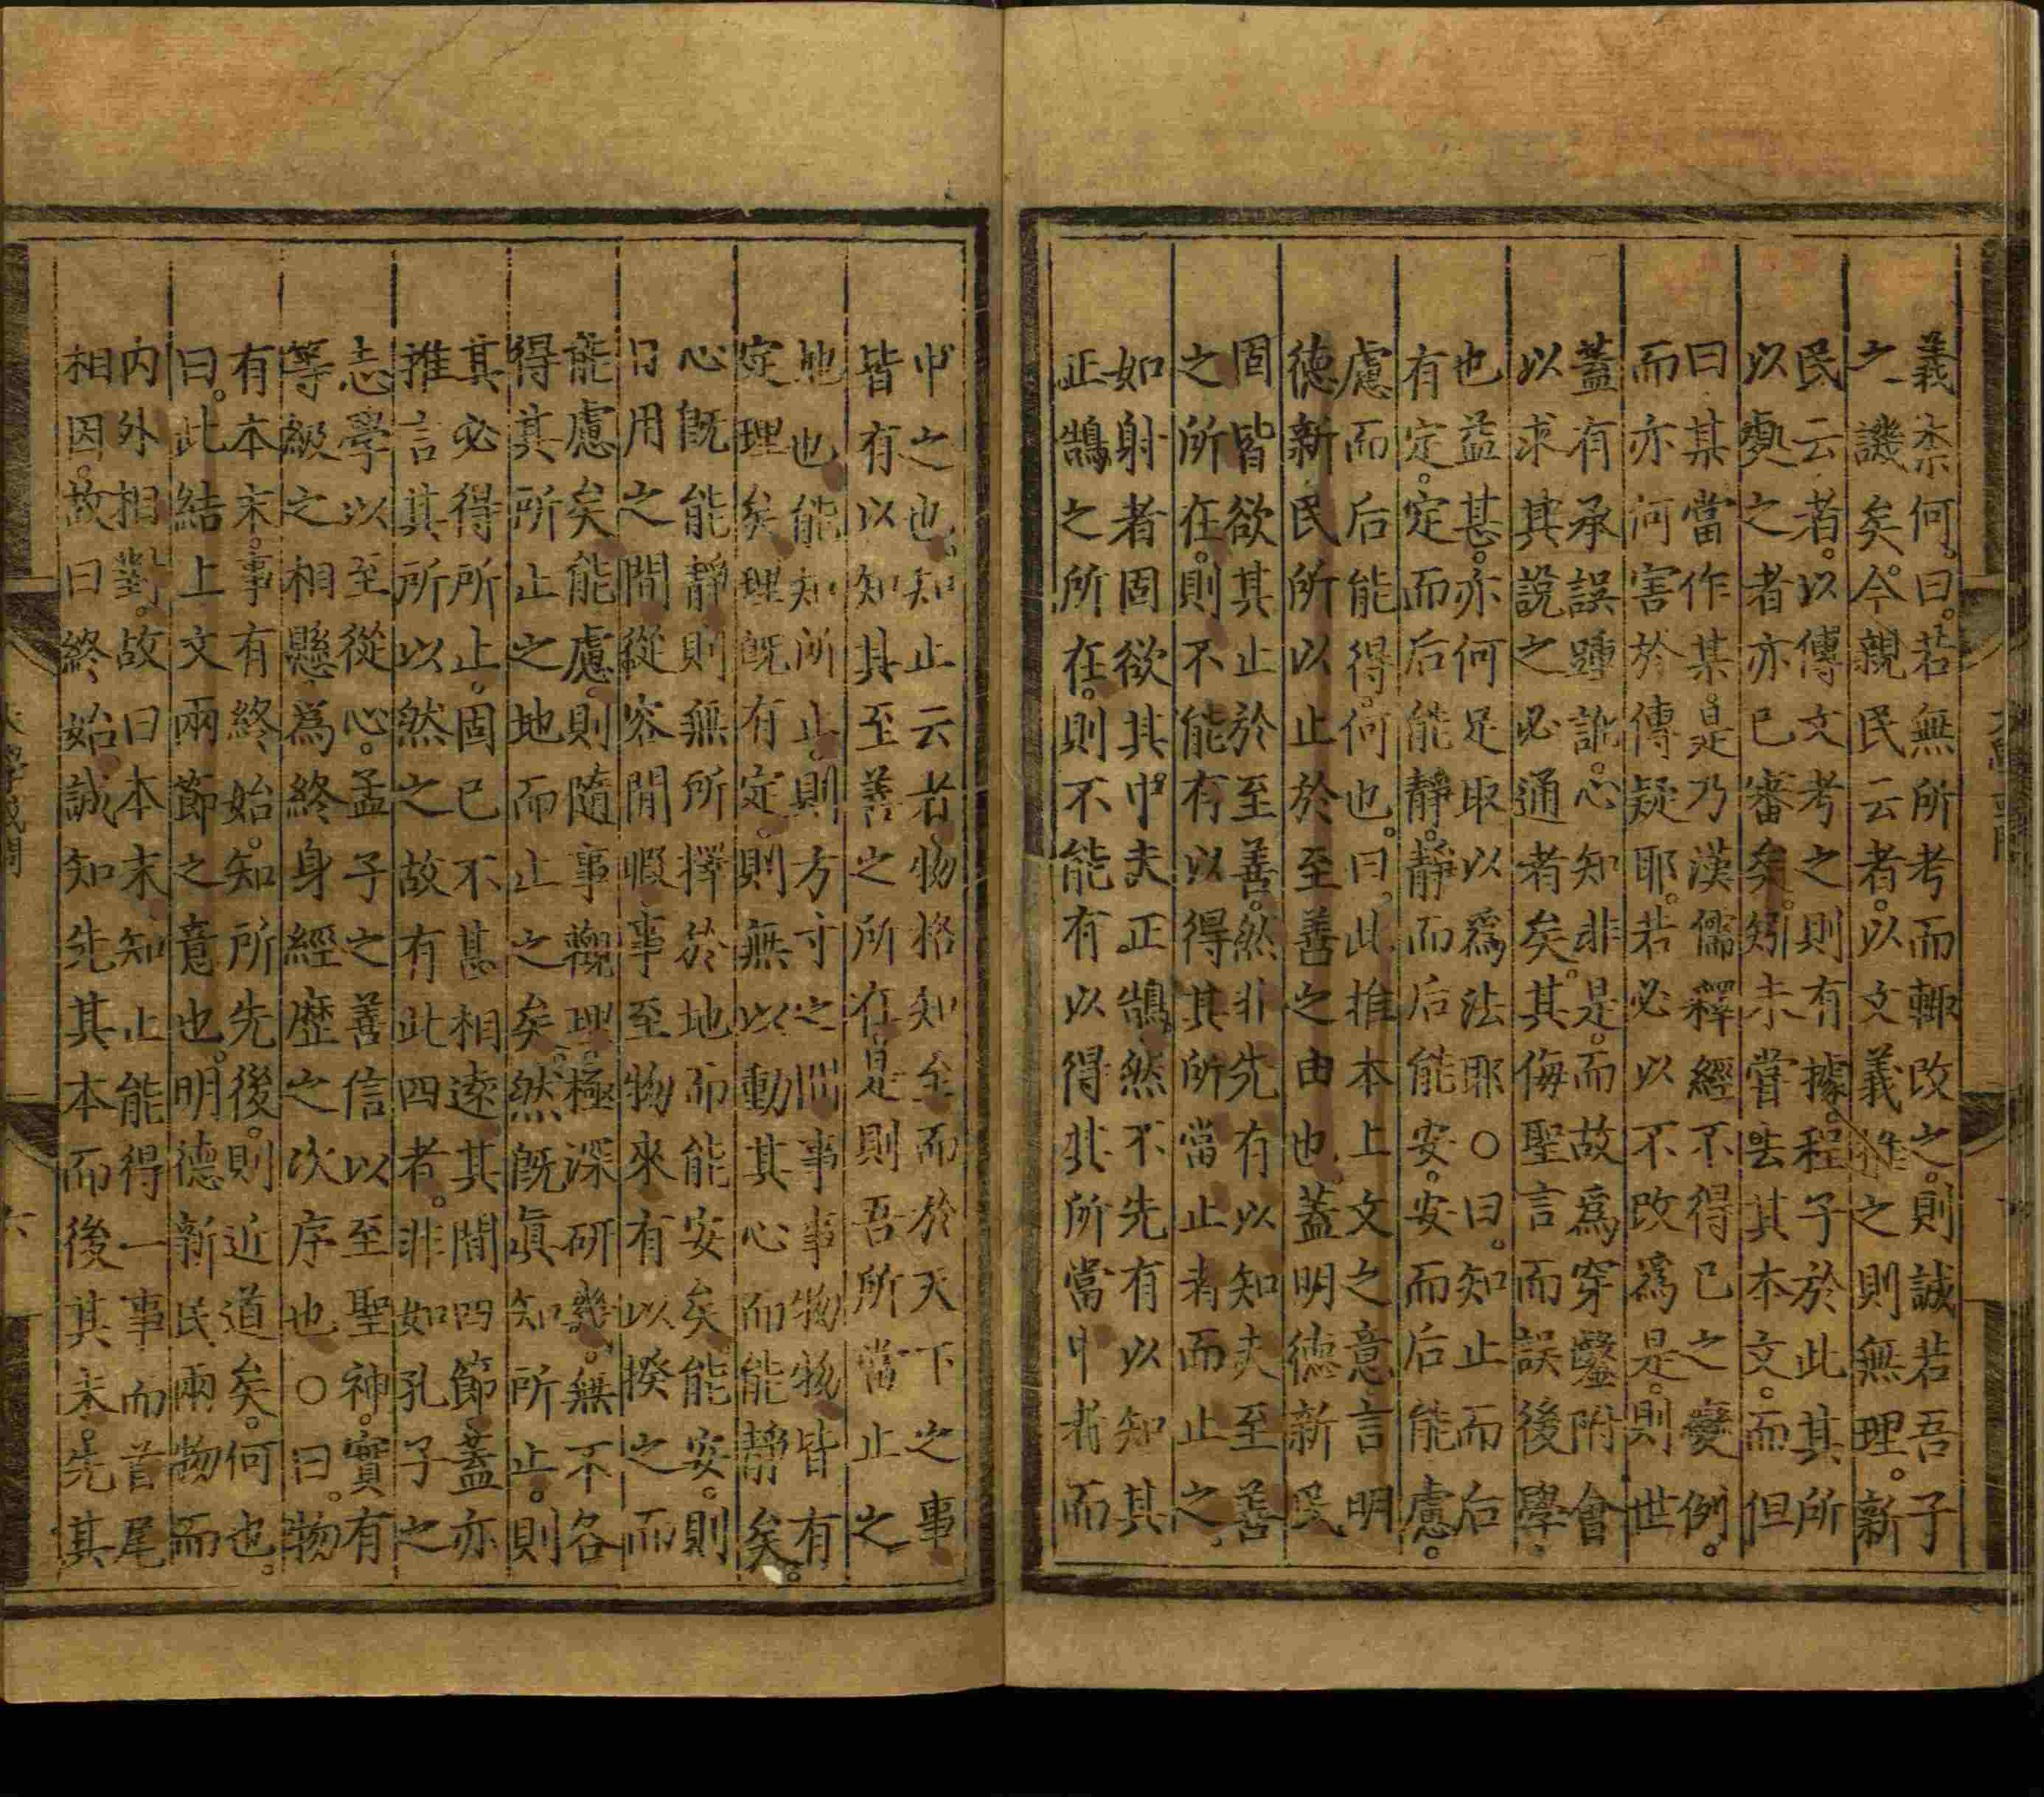 義柰何。曰。若無所考而輙改之。則誠若吾子
之譏矣。今親民云者。以文義推之則無理。新
民云者。以傳文考之則有據。程子於此其所
以處之者亦已審矣。矧未嘗去其本文。而但
曰某當作某。是乃漢儒釋經不得已之變例。
而亦何害於傳疑耶。若必以不改爲是。則世
蓋有承誤踵訛。心知非是。而故爲穿鑿附會
以求其說之必通者矣。其侮聖言而誤後學
也益甚。亦何足取以爲法耶○曰。知止而后
有定。定而后能靜。靜而后能安。安而后能慮。
慮而后能得。何也。曰。此推本上文之意言明
德新民所以止於至善之由也。蓋明德新民
固皆欲其止於至善。然非先有以知夫至善
之所在。則不能有以得其所當止者而止之。
如射者固欲其中夫正鵠。然不先有以知其
正鵠之所在。則不能有以得其所當中者而
中之也。知止云者。物格知至而於天下之事
皆有以知其至善之所在。是則吾所當止之
地也。能知所止。則方寸之間事事物物皆有
定理矣。理旣有定。則無以動其心而能靜矣。
心旣能靜則無所擇於地而能安矣。能安。則
日用之間從容閒暇事至物來有以揆之而
能慮矣。能慮。則隨事觀理。極深研幾。無不各
得其所止之地而止之矣。然旣眞知所止。則
其必得所止。固已不甚相遠其間四節。蓋亦
推言其所以然之故。有此四者。非如孔子之
志學以至從心。孟子之善信以至聖神。實有
等級之相懸。爲終身經歷之次序也○曰。物
有本末。事有終始。知所先後。則近道矣。何也。
曰。此結上文兩節之意也。明德新民兩物而
內外相對。故曰本末知止能得一事而首尾
相因。故曰終始誠知先其本而後其末。先其
大學或問
六